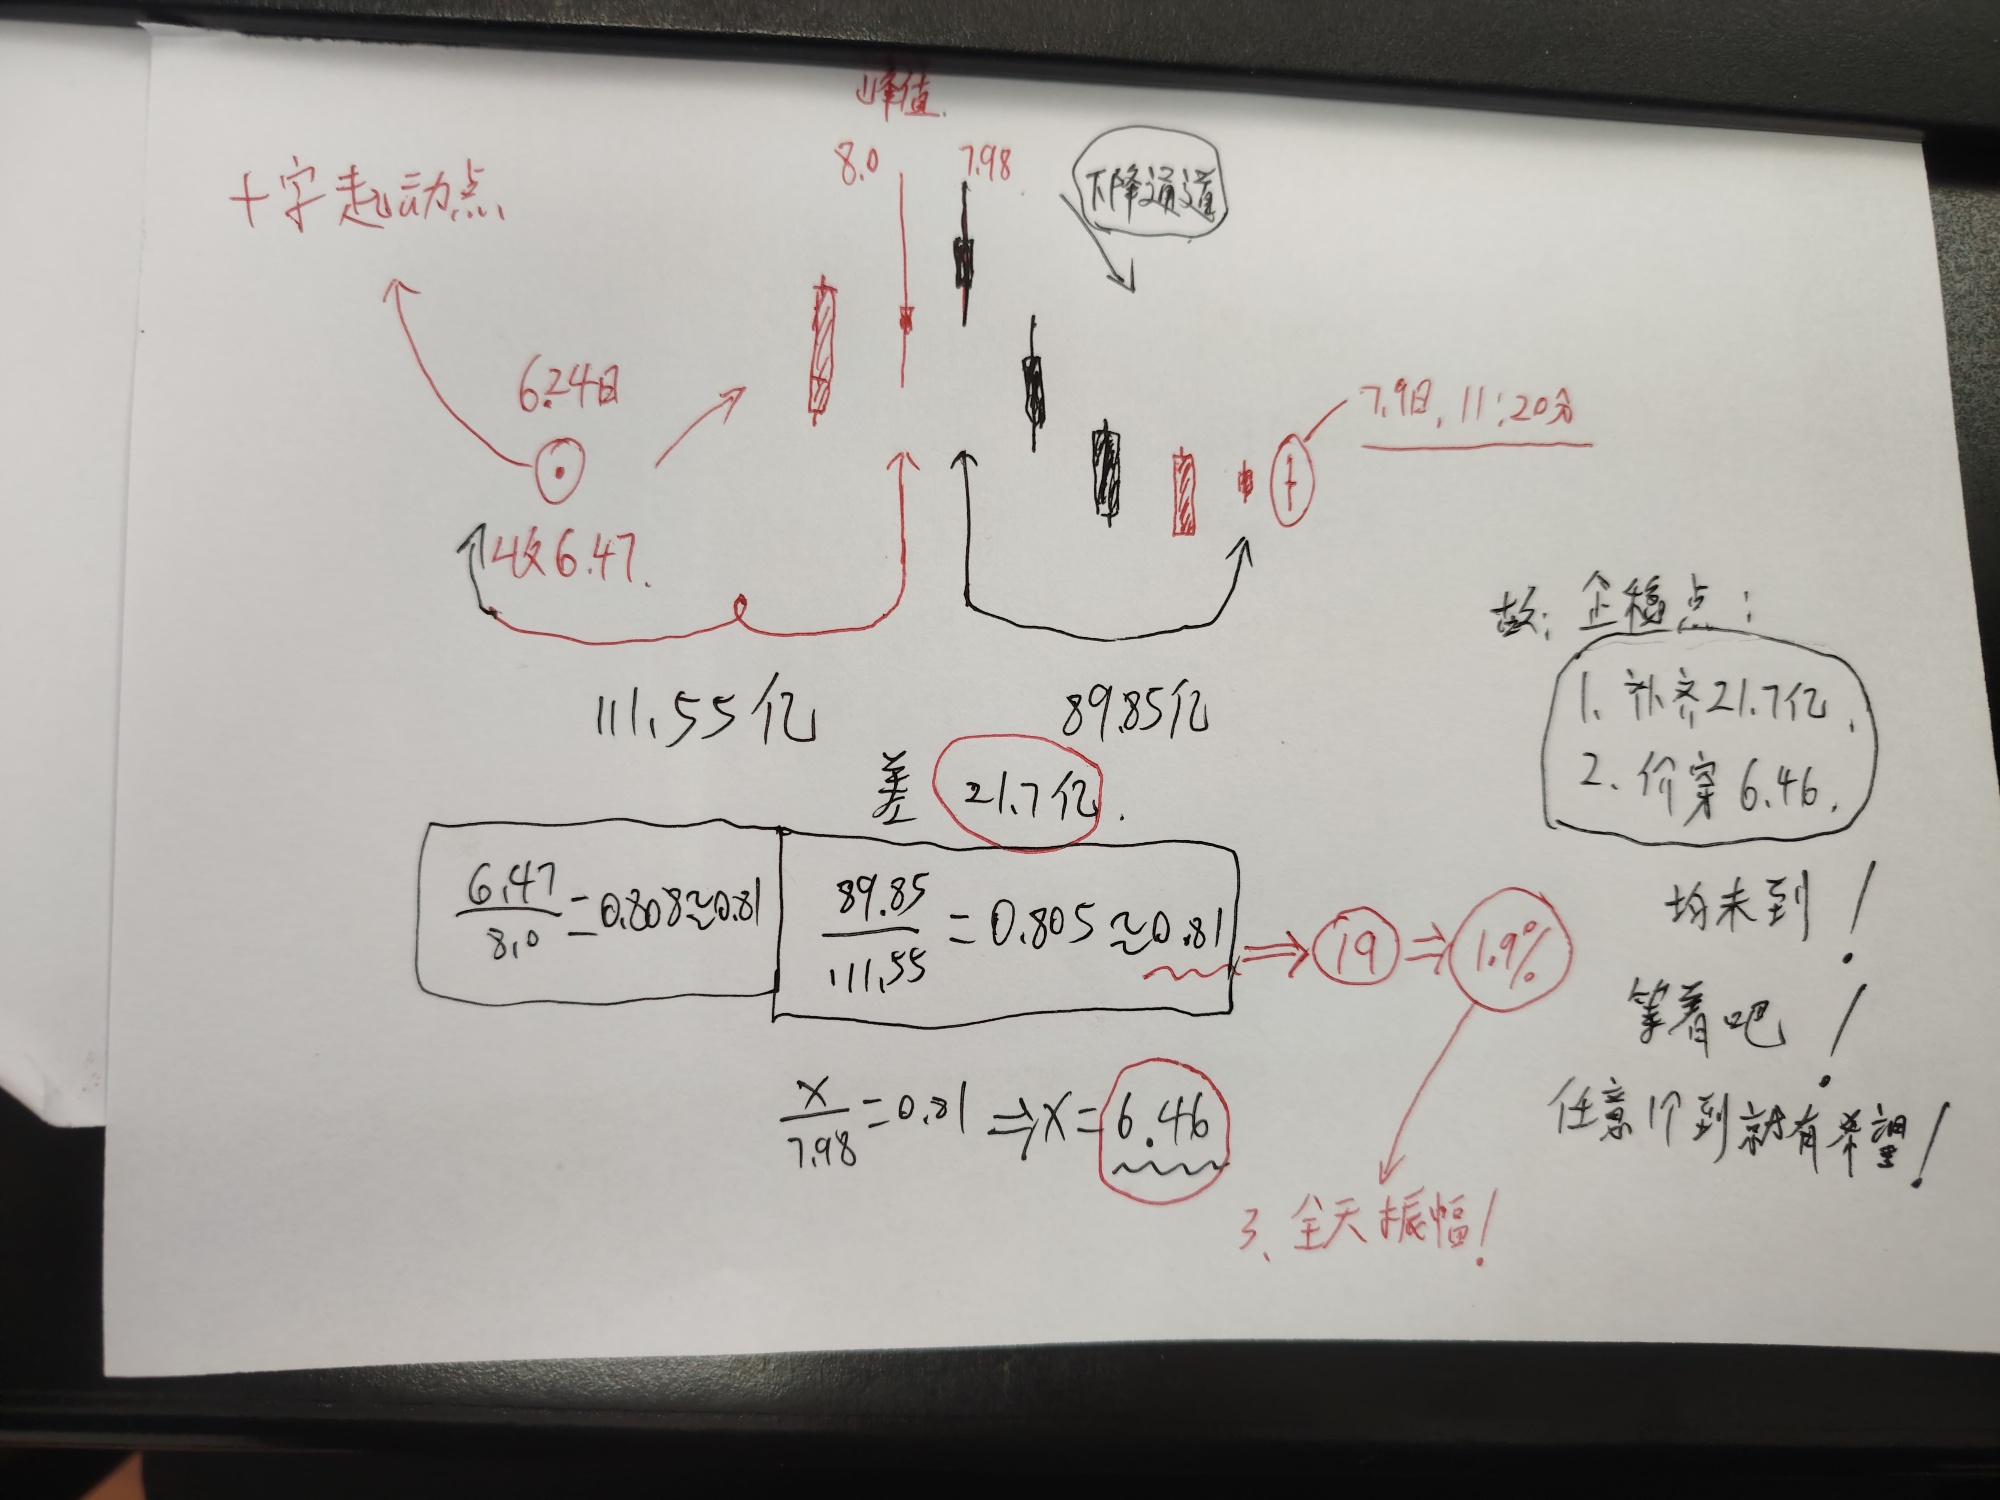 峰值
8.0 7.98
下降通道
十字起动点
6.24日
收6.47.
7.9日.11:20分
111.55亿
89.85亿
差 21.7亿.
6.47/8.0=0.808≈0.81
89.85/111.55=0.805≈0.81⇒19⇒1.9%
x/7.98=0.81⇒x=6.46
3、全天振幅!
故:企稳点:
1.补齐21.7亿.
2.价穿6.46.
均未到!
等着吧!
任意1个到就有希望!